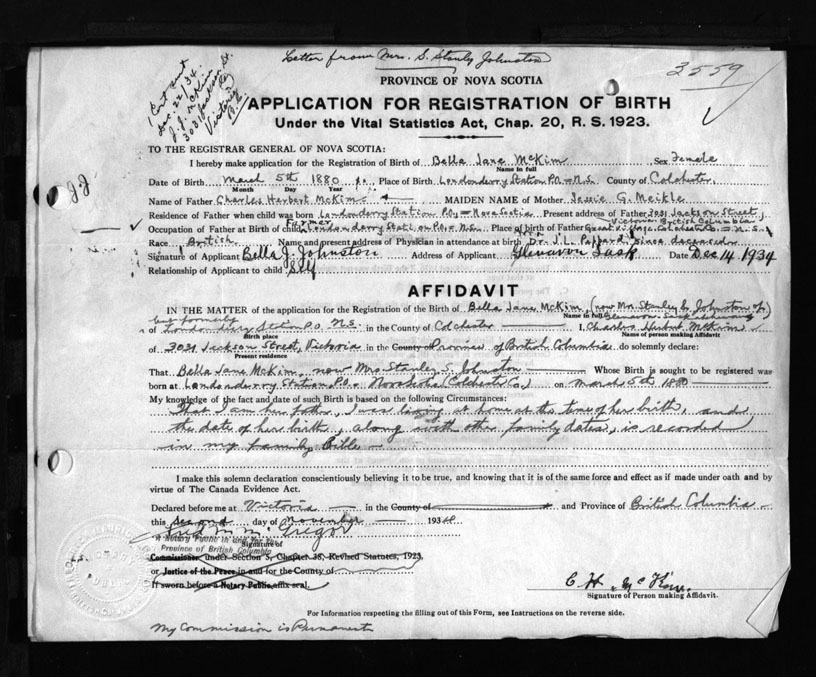 Letter from Mrs. S. Stanly Johnston
3559
Cert sent
Dec 22/34
J.J. McKim
3031 Jackson St.
Victoria
B.C.
PROVINCE OF NOVA SCOTIA
APPLICATION FOR REGISTRATION OF BIRTH
Under the Vital Statistics Act, Chap. 20, R. S. 1923.
TO THE REGISTRAR GENERAL OF NOVA SCOTIA:
I hereby make application for the Registration of Birth of Bella Jane McKim Sex Female
Name in full
J.J
Date of Birth March 5th 1880 Place of Birth Londonderry Station P.O. = N.S. County of Colchester
Month Day Year
Name of Father Charles Herbert McKim MAIDEN NAME of Mother Jessie G. Meikle
Residence of Father when child was born Londonderry Station P.O. = Nova Scotia Present address of Father 3031 Jackson Street,
Victoria British Columbia
Occupation of Father at Birth of child Farmer Londonderry Station P.O. = N.S. Place of birth of Father Great Village Colchester Co = N.S.
Race British Name and present address of Physician in attendance at birth Dr. J.L. Since deceased
Signature of Applicant Bella J. Johnston Address of Applicant Glenavon Sask Date Dec 14 1934
Relationship of Applicant to child Self
AFFIDAVIT
IN THE MATTER of the application for the Registration of the Birth of Bella Jane McKim, (now Mrs. Stanley S. Johnston of
Name in full Glenavon Saskatchewan)
but formerly
of Londonderry Station P.O. N.S. in the County of Colchester I, Charles Herbert McKim
Birth place Name of person making Affidavit
of 3031 Jackson Street, Victoria in the County of Province of British Columbia, do solemnly declare:
Present residence
That Bella Jane McKim, now Mrs Stanley S. Johnston Whose Birth is sought to be registered was
born at Londonderry Station, P.O. Nova Scotia (Colchester Co.) on March 5th 1880
My knowledge of the fact and date of such Birth is based on the following Circumstances:
That I am her father, I was living at home at the time of her birth, and
the date of her birth, along with other family dates, is recorded
in my family Bible
I make this solemn declaration conscientiously believing it to be true, and knowing that it is of the same force and effect as if made under oath and by
virtue of The Canada Evidence Act.
Declared before me at Victoria in the County of and Province of British Columbia
this second day of November 1934
Gregor
A Notary Public in and for the
Signature of
Province of British Columbia
Commissioner under Section 5, Chapter 38, Revised Statutes, 1923,
or Justice of the Peace in and for the County of
If sworn before a Notary Public, affix seal.
C. H. McKim
Signature of Person making Affidavit.
For Information respecting the filling out of this Form, see Instructions on the reverse side.
My Commission is Permanent